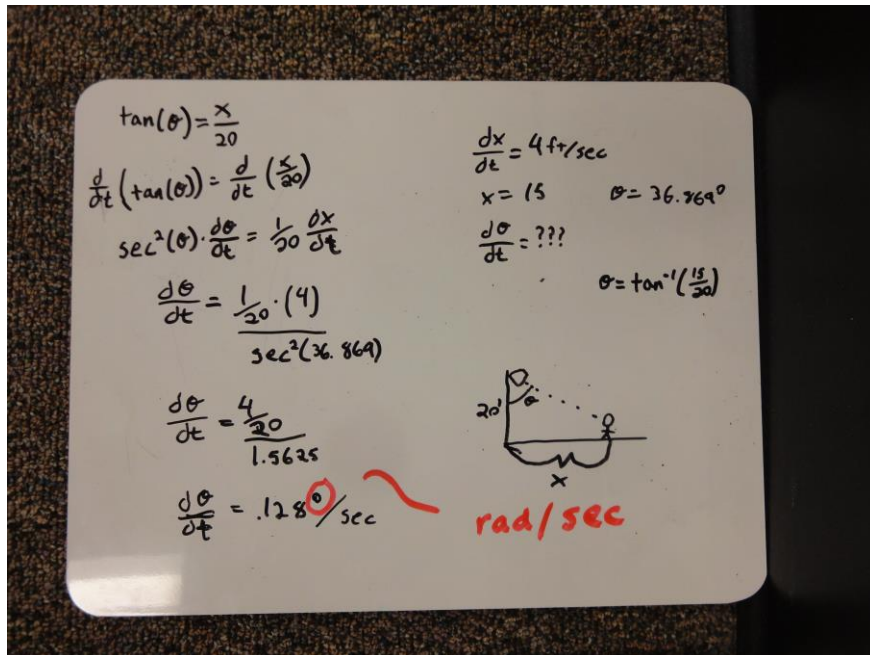 tan(θ) = x/20
d/dt (tan(θ)) = d/dt (x/20)
sec²(θ) · dθ/dt = 1/20 dx/dt
dθ/dt = 1/20 · (4) / sec²(36.869)
dθ/dt = 4/20 / 1.5625
dθ/dt = .128°/sec
dx/dt = 4 ft/sec
x = 15 θ = 36.869°
dθ/dt = ???
θ = tan⁻¹(15/20)
20'
θ
x
rad/sec